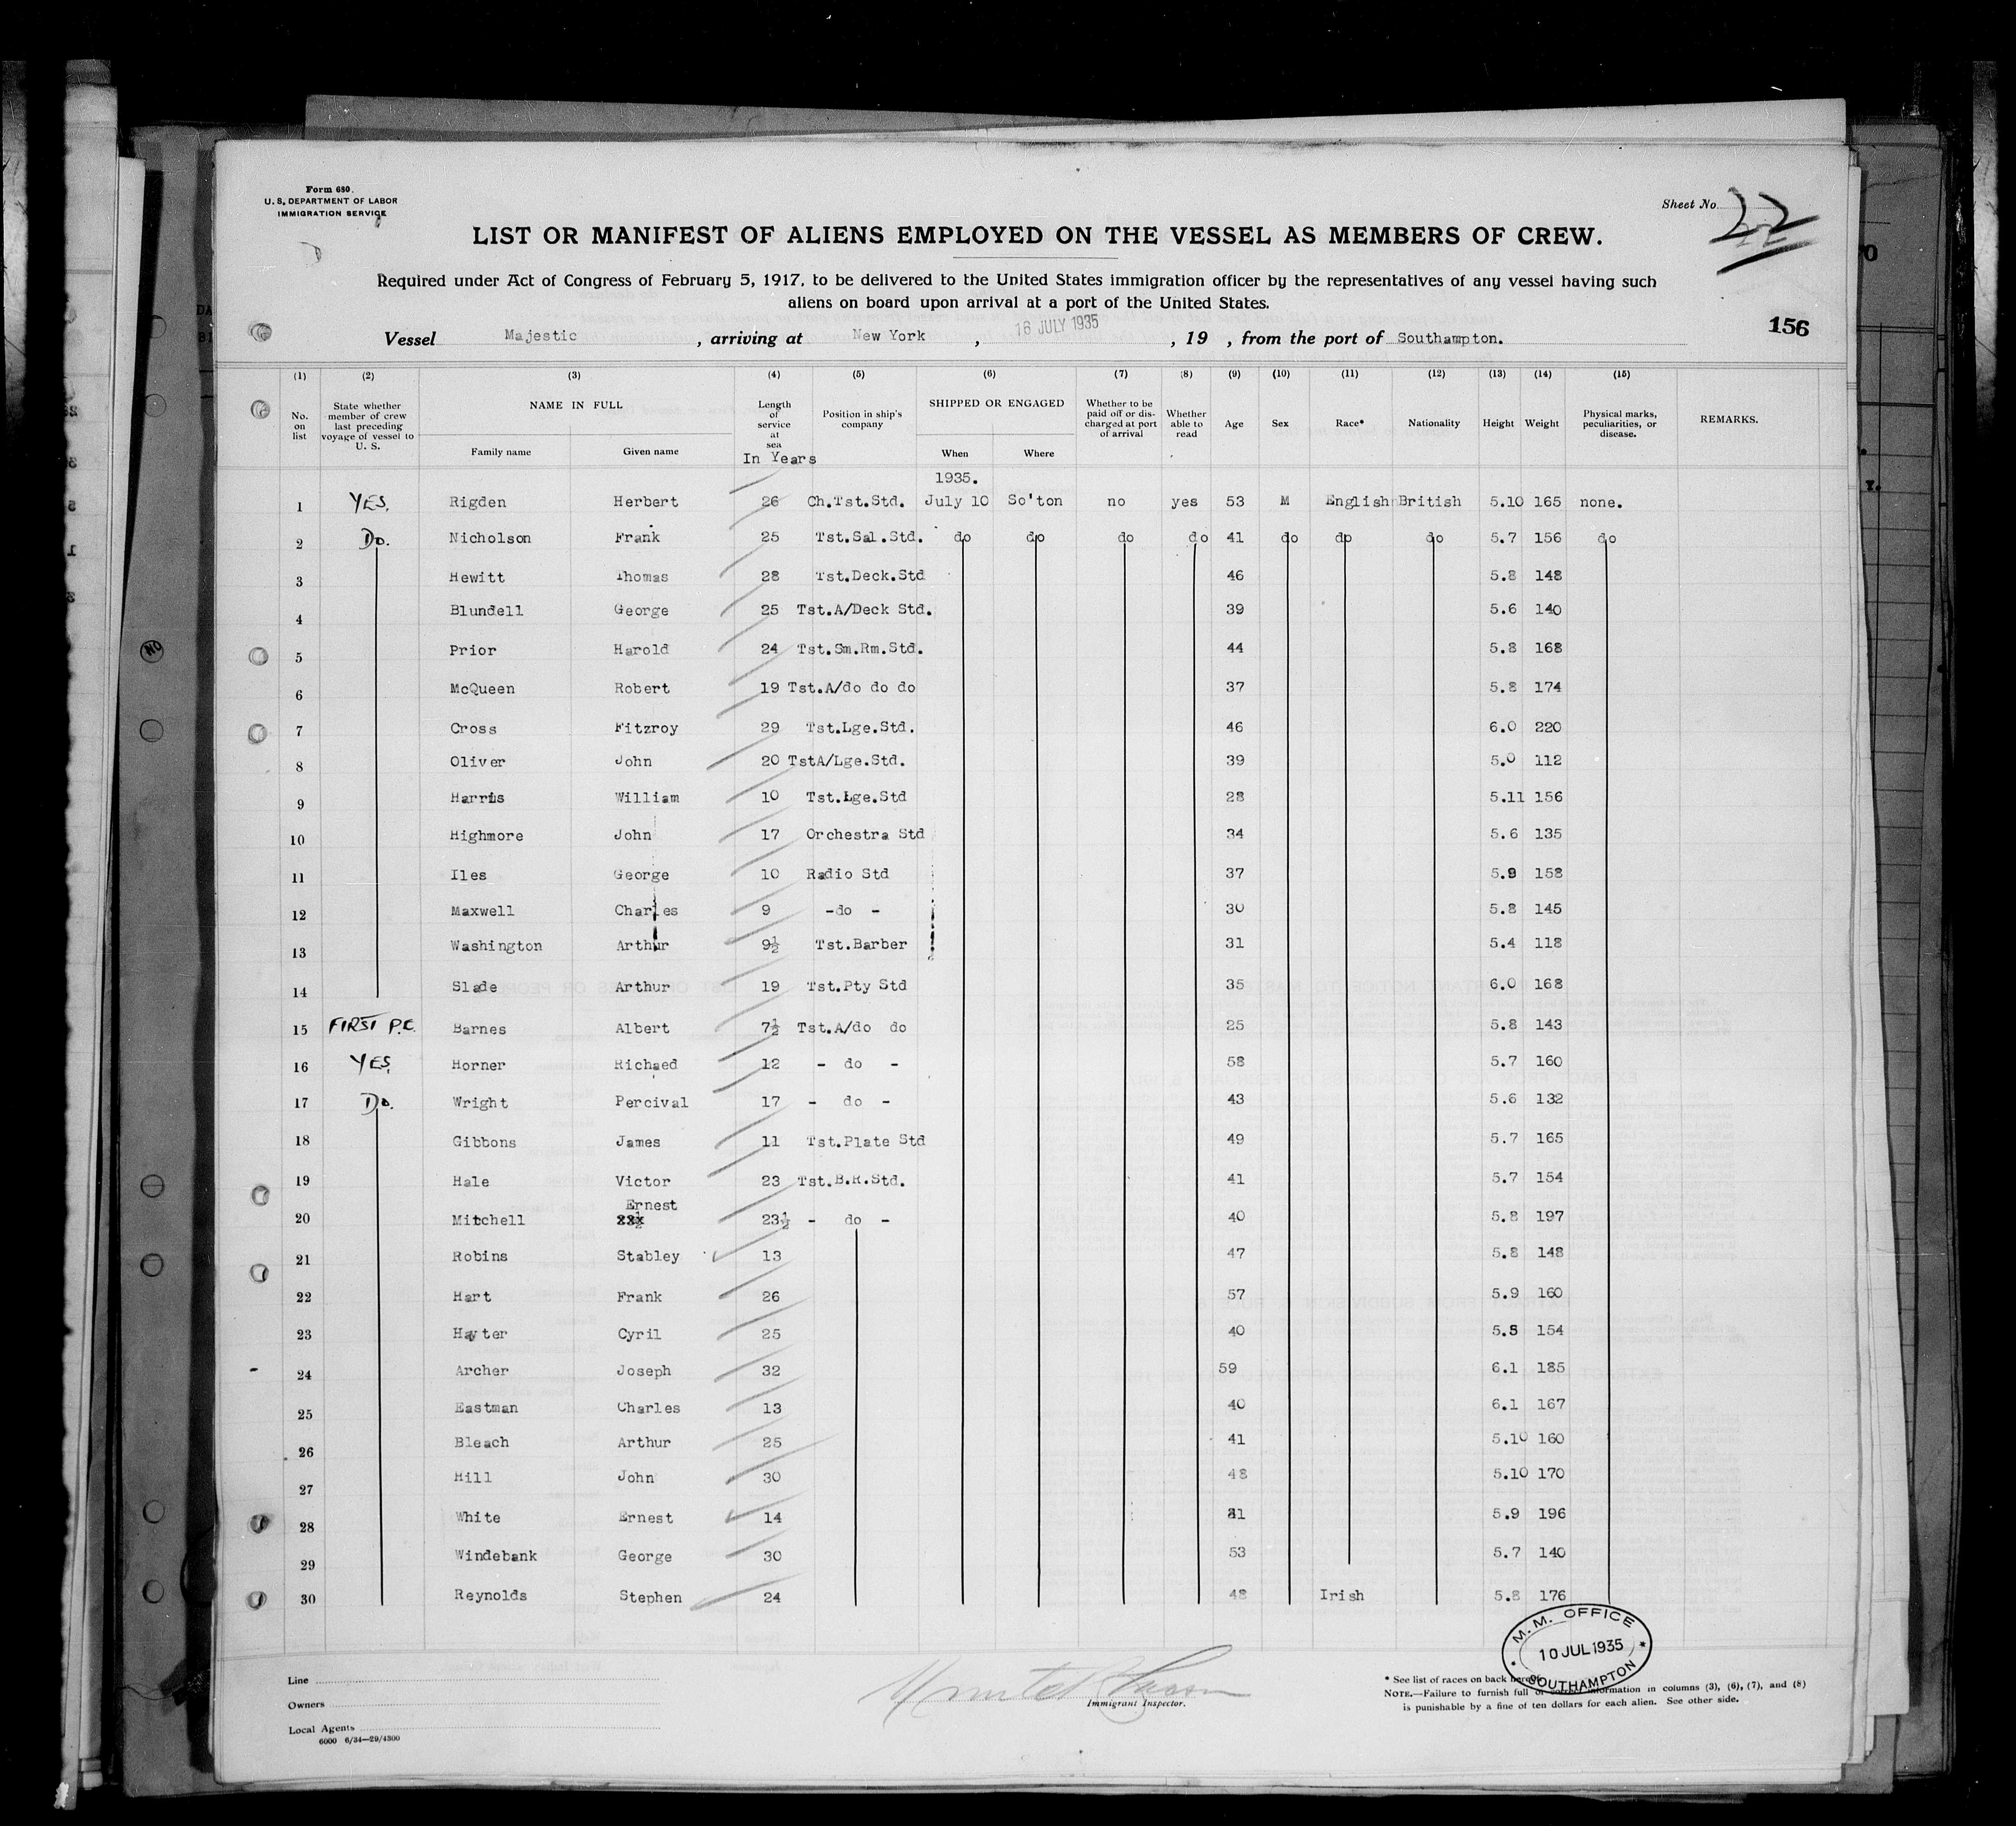 Form 680.
U. S. DEPARTMENT OF LABOR
IMMIGRATION SERVICE
Sheet No. 22
LIST OR MANIFEST OF ALIENS EMPLOYED ON THE VESSEL AS MEMBERS OF CREW.
Required under Act of Congress of February 5, 1917, to be delivered to the United States immigration officer by the representatives of any vessel having such
aliens on board upon arrival at a port of the United States.
156
Vessel Majestic, arriving at New York, 16 JULY 1935, 19 , from the port of Southampton.
(1) (2) (3) (4) (5) (6) (7) (8) (9) (10) (11) (12) (13) (14) (15)
No. on list State whether member of crew last preceding voyage of vessel to U. S. NAME IN FULL Family name Given name Length of service at sea In Years Position in ship's company SHIPPED OR ENGAGED When Where Whether to be paid off or discharged at port of arrival Whether able to read Age Sex Race* Nationality Height Weight Physical marks, peculiarities, or disease. REMARKS.
1935.
1 YES. Rigden Herbert 26 Ch.Tst.Std. July 10 So'ton no yes 53 M English British 5.10 165 none.
2 Do. Nicholson Frank 25 Tst.Sal.Std. do do do do 41 do do do 5.7 156 do
3 Hewitt Thomas 28 Tst.Deck.Std 46 5.8 148
4 Blundell George 25 Tst.A/Deck Std. 39 5.6 140
5 Prior Harold 24 Tst.Sm.Rm.Std. 44 5.8 168
6 McQueen Robert 19 Tst.A/do do do 37 5.8 174
7 Cross Fitzroy 29 Tst.Lge.Std. 46 6.0 220
8 Oliver John 20 TstA/Lge.Std. 39 5.0 112
9 Harris William 10 Tst.Lge.Std 28 5.11 156
10 Highmore John 17 Orchestra Std 34 5.6 135
11 Iles George 10 Radio Std 37 5.9 158
12 Maxwell Charles 9 -do - 30 5.8 145
13 Washington Arthur 9½ Tst.Barber 31 5.4 118
14 Slade Arthur 19 Tst.Pty Std 35 6.0 168
15 FIRST P.C. Barnes Albert 7½ Tst.A/do do 25 5.8 143
16 YES. Horner Richaed 12 - do - 58 5.7 160
17 Do. Wright Percival 17 - do - 43 5.6 132
18 Gibbons James 11 Tst.Plate Std 49 5.7 165
19 Hale Victor 23 Tst.B.R.Std. 41 5.7 154
20 Mitchell Ernest 23½ - do - 40 5.8 197
21 Robins Stabley 13 47 5.8 148
22 Hart Frank 26 57 5.9 160
23 Hayter Cyril 25 40 5.8 154
24 Archer Joseph 32 59 6.1 185
25 Eastman Charles 13 40 6.1 167
26 Bleach Arthur 25 41 5.10 160
27 Hill John 30 48 5.10 170
28 White Ernest 14 5.9 196
29 Windebank George 30 53 5.7 140
30 Reynolds Stephen 24 48 Irish 5.8 176
M. M. OFFICE
10 JUL 1935
SOUTHAMPTON
Line
Owners
Local Agents
6000 6/34—29/4300
Immigrant Inspector.
* See list of races on back hereof.
NOTE.—Failure to furnish full or information in columns (3), (6), (7), and (8)
is punishable by a fine of ten dollars for each alien. See other side.